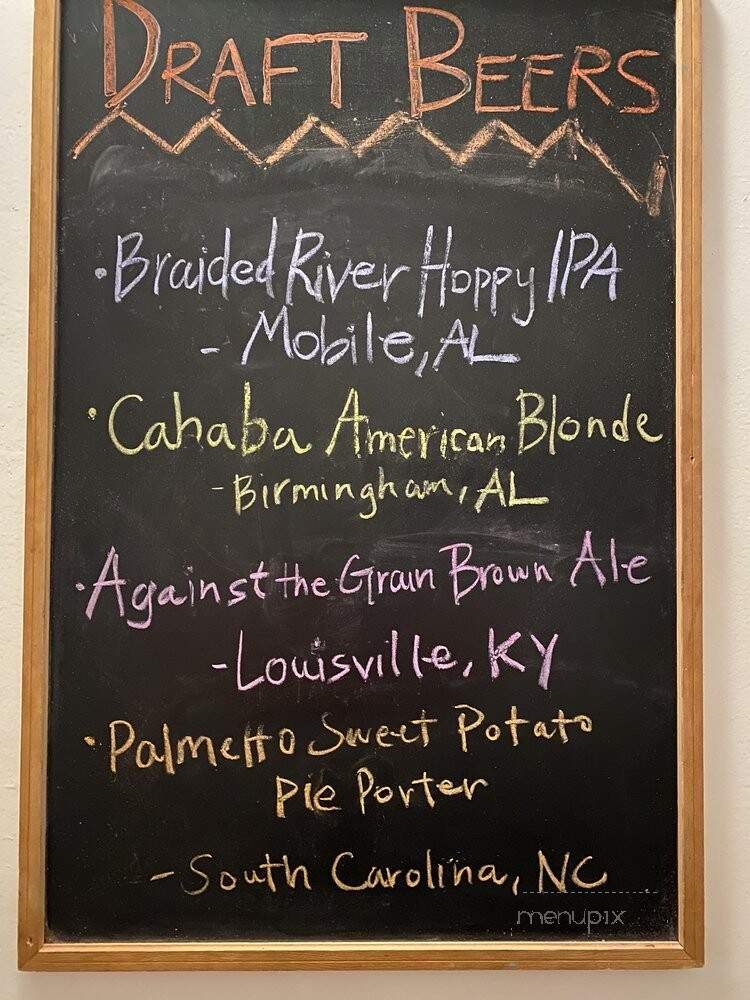 DRAFT BEERS
·Braided River Hoppy IPA
- Mobile, AL
·Cahaba American Blonde
-Birmingham, AL
·Against the Grain Brown Ale
-Louisville, KY
·Palmetto Sweet Potato
Pie Porter
-South Carolina, NC
menupix